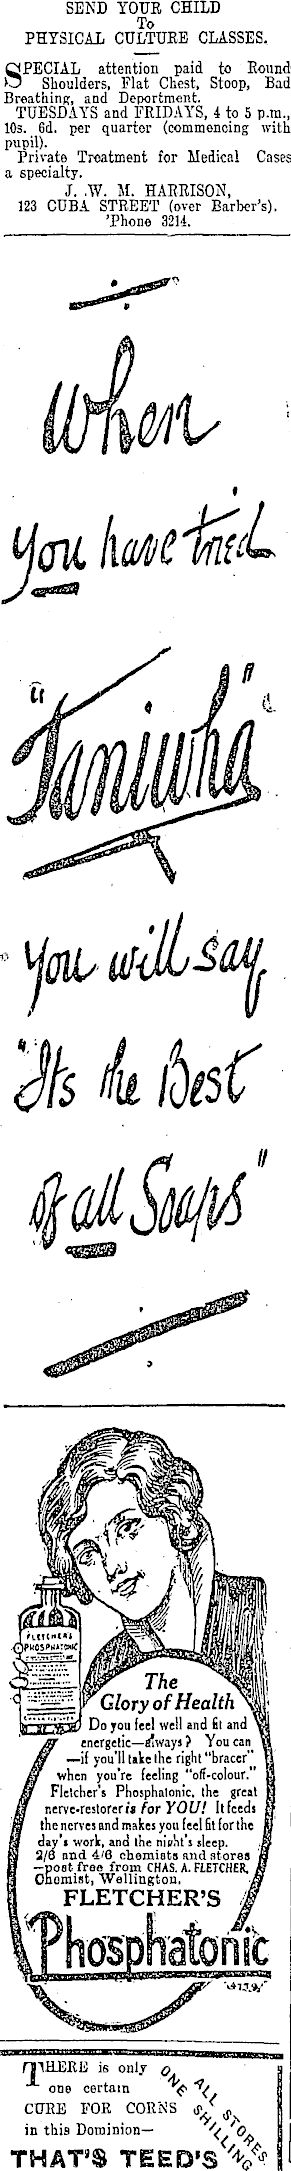 SEND YOUR CHILD
To
PHYSICAL CULTURE CLASSES.
SPECIAL attention paid to Round
Shoulders, Flat Chest, Stoop, Bad
Breathing, and Deportment.
TUESDAYS and FRIDAYS, 4 to 5 p.m.,
10s. 6d. per quarter (commencing with
pupil).
Private Treatment for Medical Cases
a specialty.
J. W. M. HARRISON,
123 CUBA STREET (over Barber's).
'Phone 3214.
When
you have tried
"Taniwha"
You will say
"Its the Best
of all Soaps"
FLETCHERS
PHOSPHATONIC
The
Glory of Health
Do you feel well and fit and
energetic—always? You can
—if you'll take the right "bracer"
when you're feeling "off-colour."
Fletcher's Phosphatonic, the great
nerve-restorer is for YOU! It feeds
the nerves and makes you feel fit for the
day's work, and the night's sleep.
2/6 and 4/6 chemists and stores
—post free from CHAS. A. FLETCHER,
Chemist, Wellington.
FLETCHER'S
Phosphatonic
THERE is only
one certain
CURE FOR CORNS
in this Dominion—
THAT'S TEED'S
ONE SHILLING
ALL STORES.